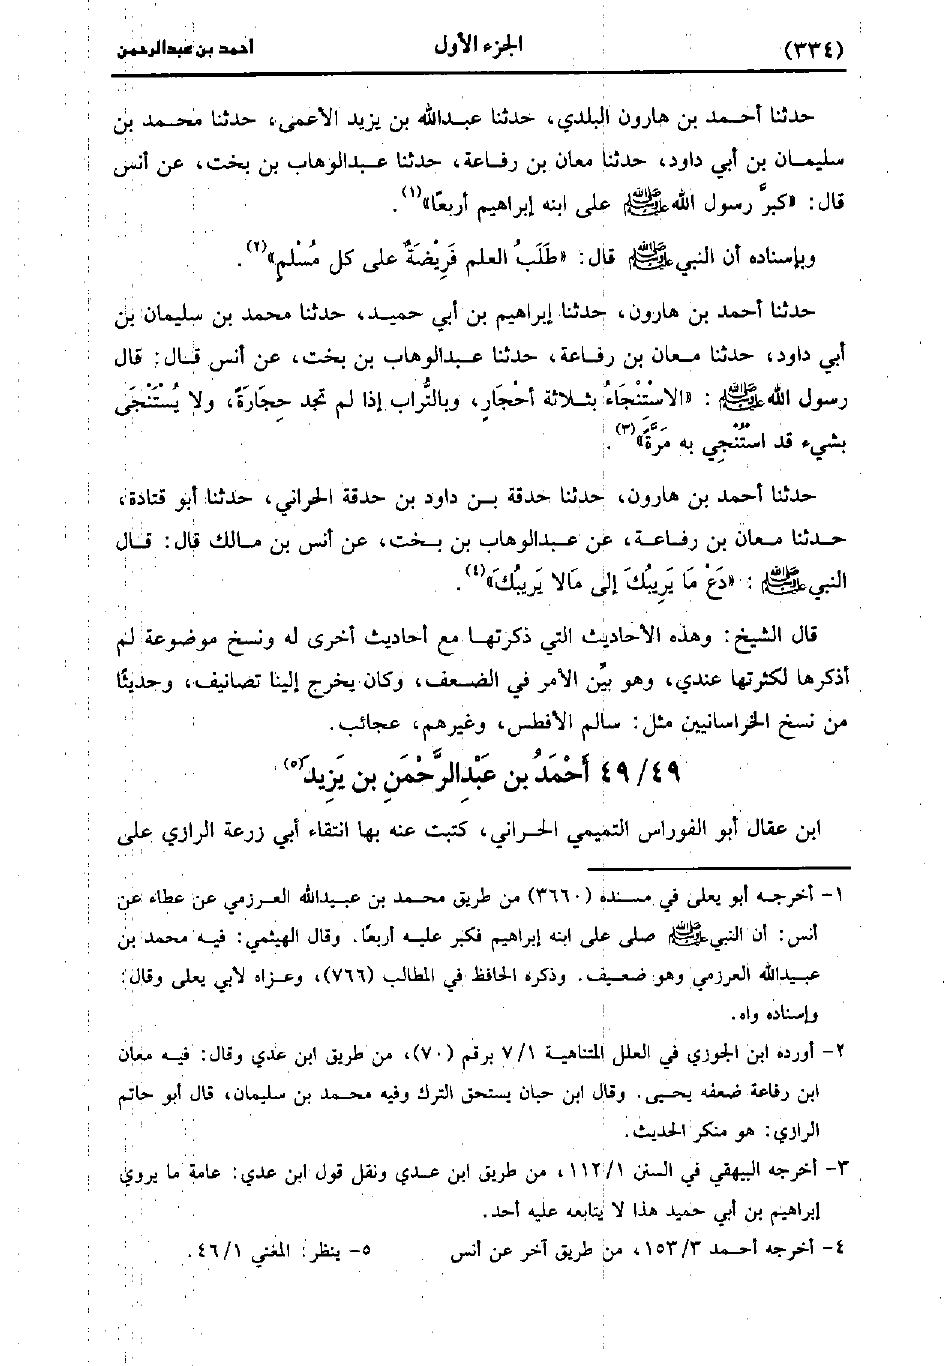 (٣٣٤) الجزء الأول أحمد بن عبدالرحمن
حدثنا أحمد بن هارون البلدي، حدثنا عبدالله بن يزيد الأعمى، حدثنا محمد بن
سليمان بن أبي داود، حدثنا معان بن رفاعة، حدثنا عبدالوهاب بن بخت، عن أنس
قال: «كبَّر رسول الله ﷺ على ابنه إبراهيم أربعًا»(١).
وبإسناده أن النبي ﷺ قال: «طَلَبُ العلم فَرِيْضَةٌ على كل مُسْلمٍ»(٢).
حدثنا أحمد بن هارون، حدثنا إبراهيم بن أبي حميد، حدثنا محمد بن سليمان بن
أبي داود، حدثنا معان بن رفاعة، حدثنا عبدالوهاب بن بخت، عن أنس قال: قال
رسول الله ﷺ: «الاسْتْنْجَاءُ بثلاثة أحْجَارٍ، وبالتُّراب إذا لم تجد حِجارَةً، ولا يُسْتَنْجَى
بشيء قد استُنْجِي به مَرَّةً»(٣).
حدثنا أحمد بن هارون، حدثنا حدقة بن داود بن حدقة الحراني، حدثنا أبو قتادة،
حدثنا معان بن رفاعة، عن عبدالوهاب بن بخت، عن أنس بن مالك قال: قال
النبي ﷺ: «دَعْ مَا يَرِيبُكَ إلى مَالا يَرِيبُكَ»(٤).
قال الشيخ: وهذه الأحاديث التي ذكرتها مع أحاديث أخرى له ونسخ موضوعة لم
أذكرها لكثرتها عندي، وهو بيِّن الأمر في الضعف، وكان يخرج إلينا تصانيف، وحديثًا
من نسخ الخراسانيين مثل: سالم الأفطس، وغيرهم، عجائب.
٤٩/٤٩ أَحْمَدُ بن عَبْدِالرَّحْمَنِ بن يَزِيد(٥)
ابن عقال أبو الفوراس التميمي الحراني، كتبت عنه بها انتقاء أبي زرعة الرازي على
١- أخرجه أبو يعلى في مسنده (٣٦٦٠) من طريق محمد بن عبيدالله العرزمي عن عطاء عن
أنس: أن النبي ﷺ صلى على ابنه إبراهيم فكبر عليه أربعًا. وقال الهيثمي: فيه محمد بن
عبيدالله العرزمي وهو ضعيف. وذكره الحافظ في المطالب (٧٦٦)، وعزاه لأبي يعلى وقال:
وإسناده واه.
٢- أورده ابن الجوزي في العلل المتناهية ٧/١ برقم (٧٠)، من طريق ابن عدي وقال: فيه معان
ابن رفاعة ضعفه يحيى. وقال ابن حبان يستحق الترك وفيه محمد بن سليمان، قال أبو حاتم
الرازي: هو منكر الحديث.
٣- أخرجه البيهقي في السنن ١١٢/١، من طريق ابن عدي ونقل قول ابن عدي: عامة ما يروي
إبراهيم بن أبي حميد هذا لا يتابعه عليه أحد.
٤- أخرجه أحمد ١٥٣/٣، من طريق آخر عن أنس ٥- ينظر: المغني ٤٦/١.